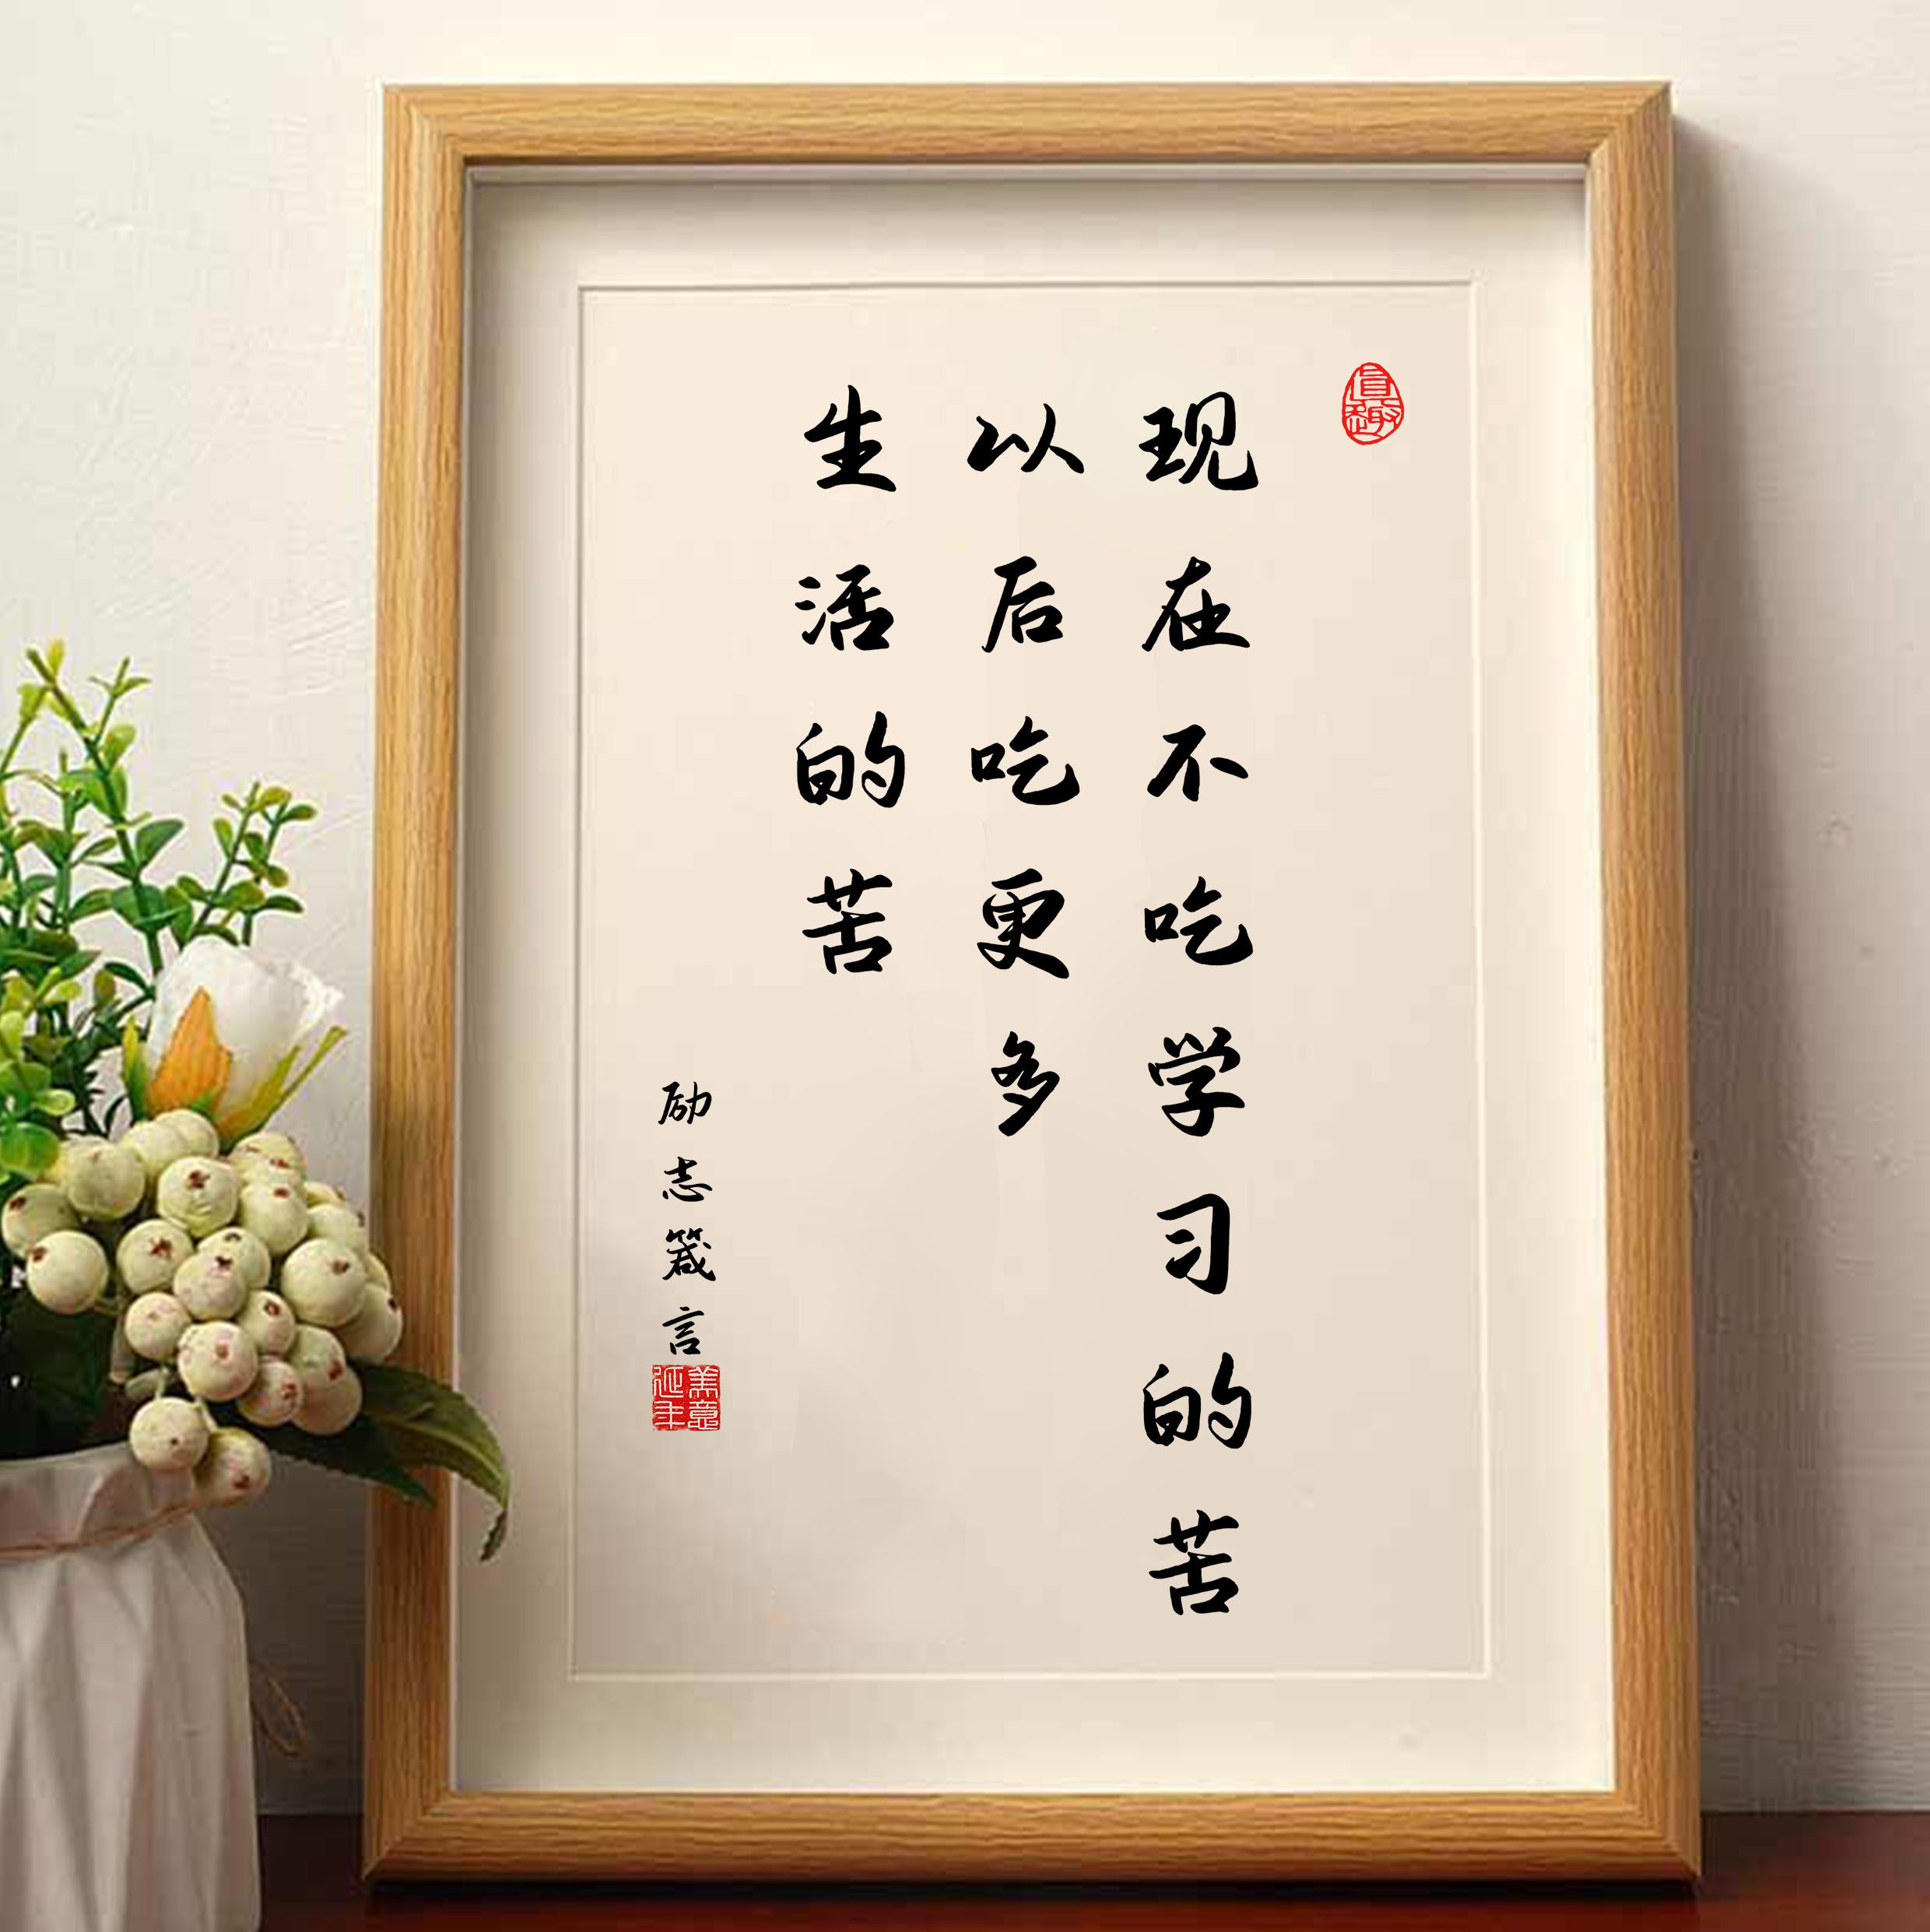 现在不吃学习的苦
以后吃更多
生活的苦
励志箴言
美意延年